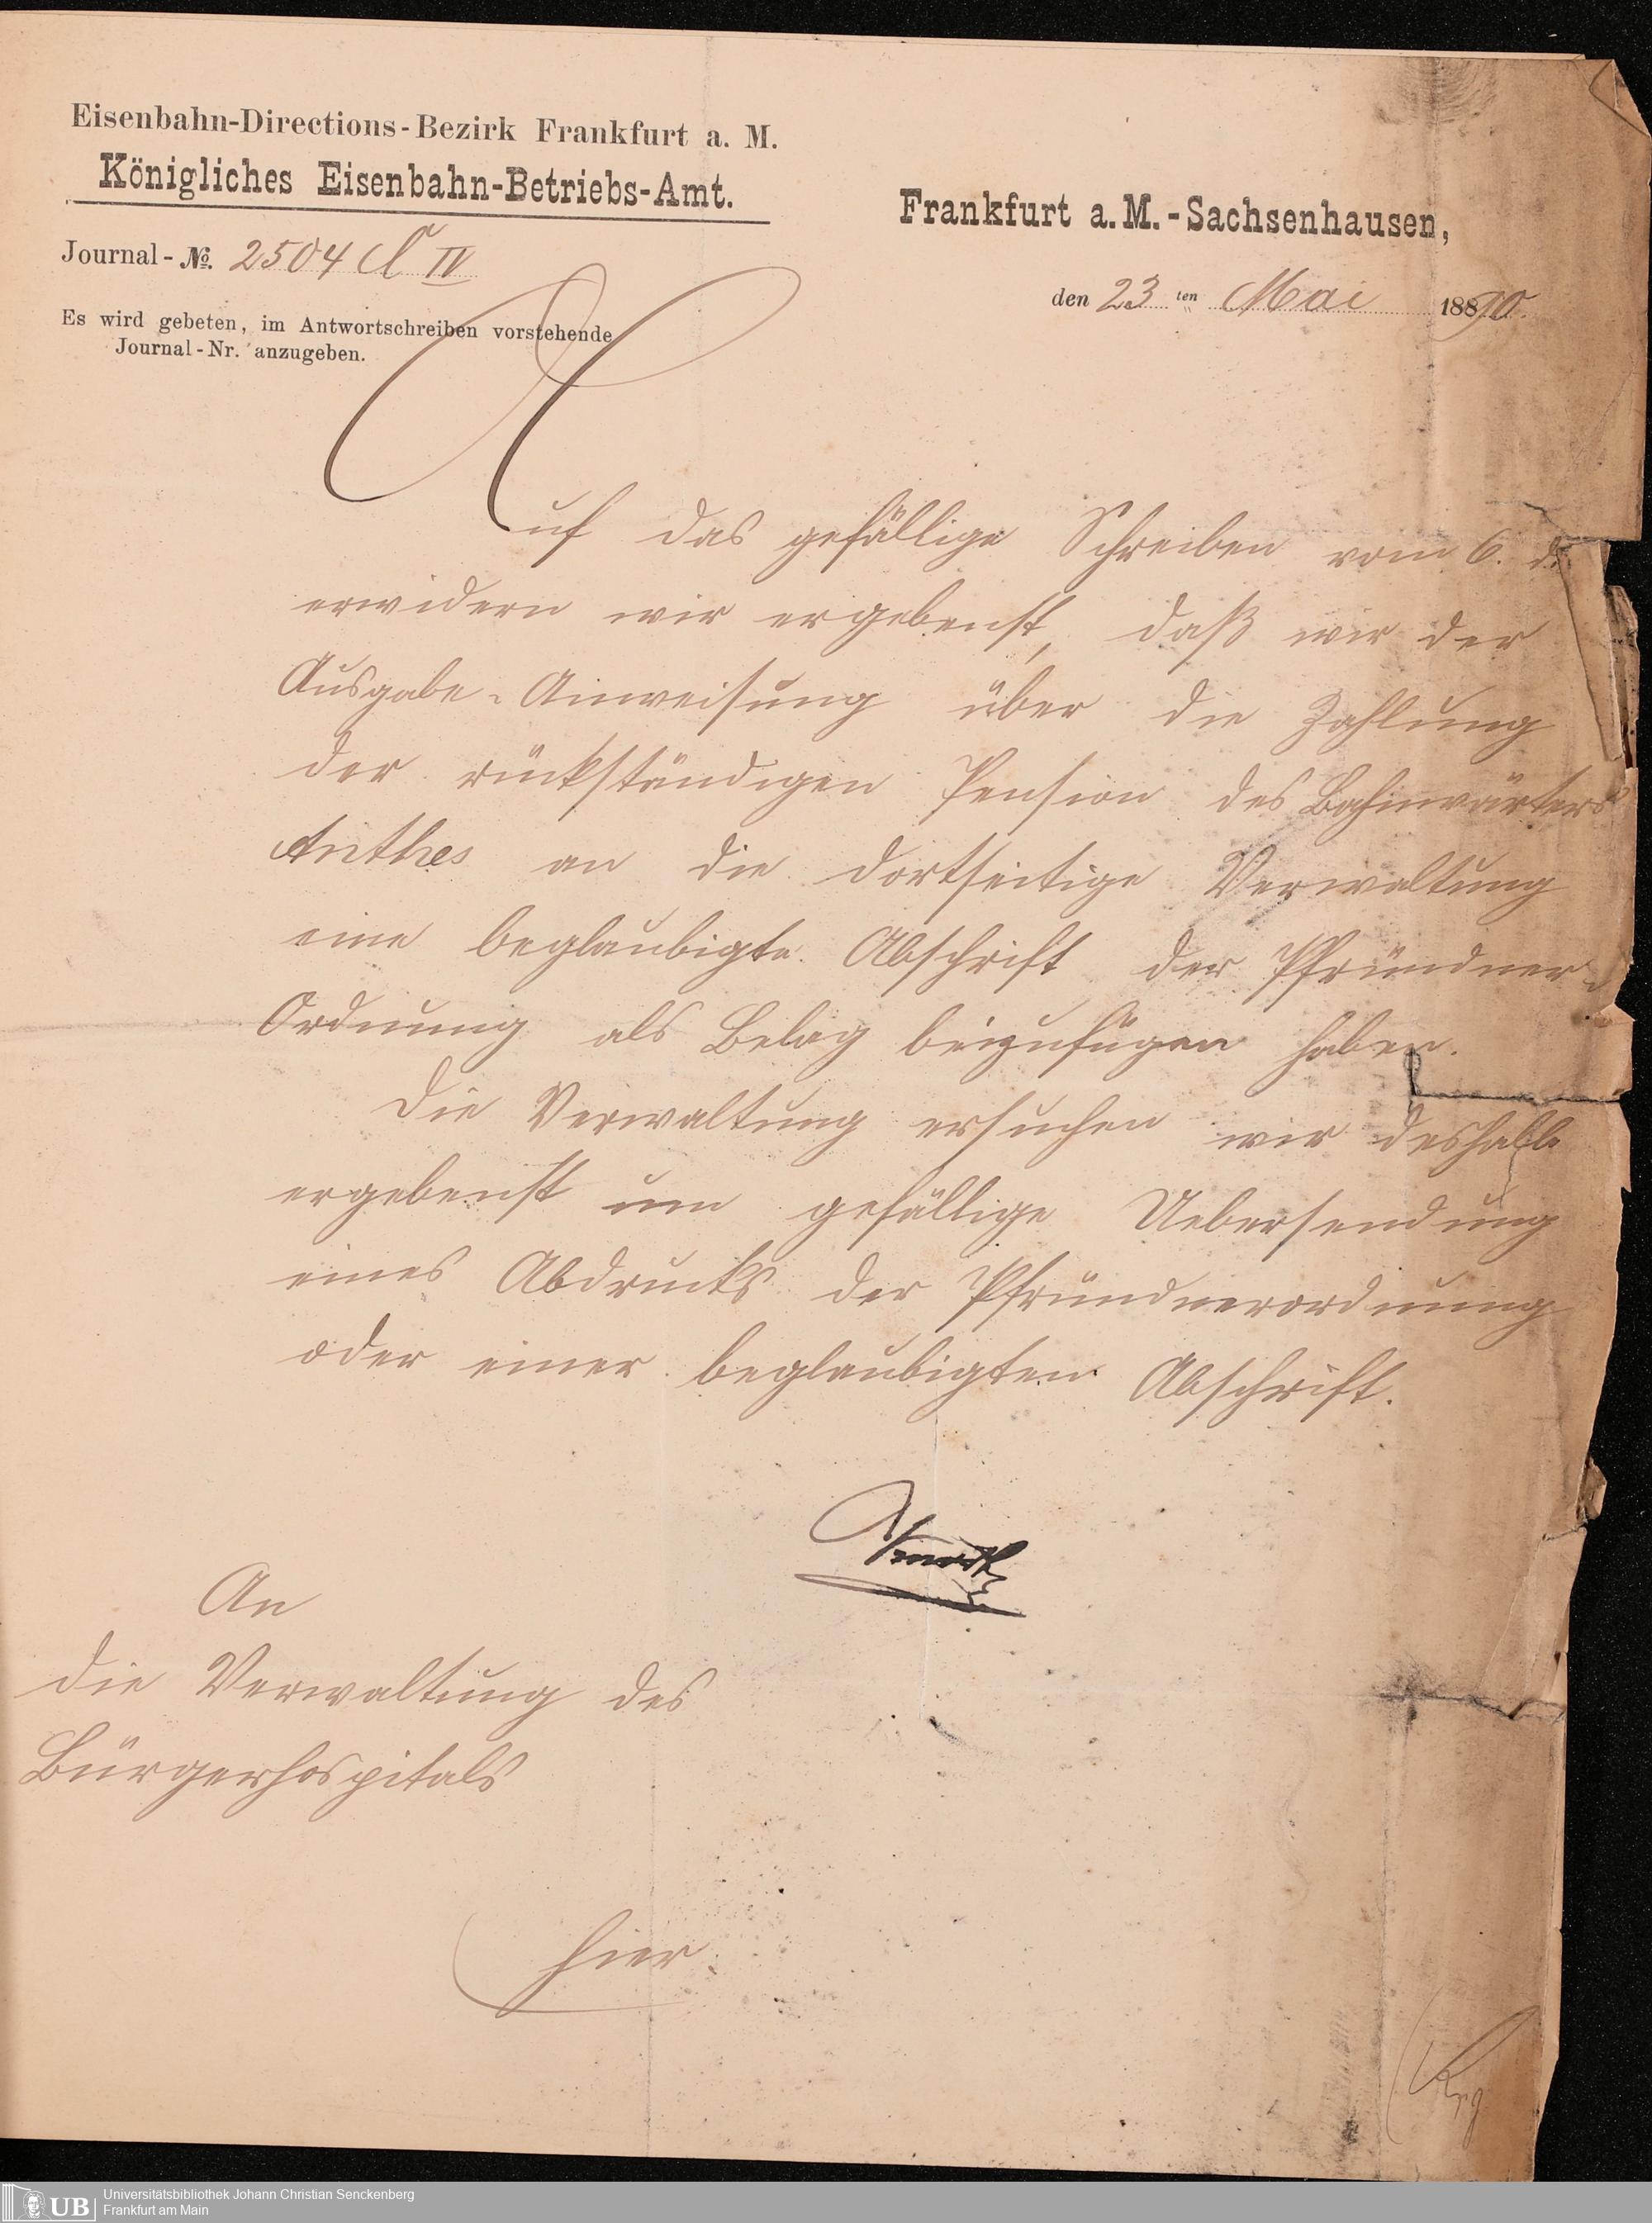 Eisenbahn-Directions-Bezirk Frankfurt a. M.
Königliches Eisenbahn-Betriebs-Amt.
Frankfurt a. M.-Sachsenhausen,
Journal-No. 2504 C IV
den 23ten Mai 1890.
Es wird gebeten, im Antwortschreiben vorstehende
Journal-Nr. anzugeben.
Auf das gefällige Schreiben vom 6. d.
erwidern wir ergebenst, daß wir der
Ausgabe-Anweisung über die Zahlung
der rückständigen Pension des Bahnwärters
Anthes an die dortseitige Verwaltung
eine beglaubigte Abschrift der Pfründner-
Ordnung als Belag beizufügen haben.
Die Verwaltung ersuchen wir deshalb
ergebenst um gefällige Uebersendung
eines Abdrucks der Pfründnerordnung
oder einer beglaubigten Abschrift.
An
die Verwaltung des
Bürgerhospitals
hier.
UB
Universitätsbibliothek Johann Christian Senckenberg
Frankfurt am Main